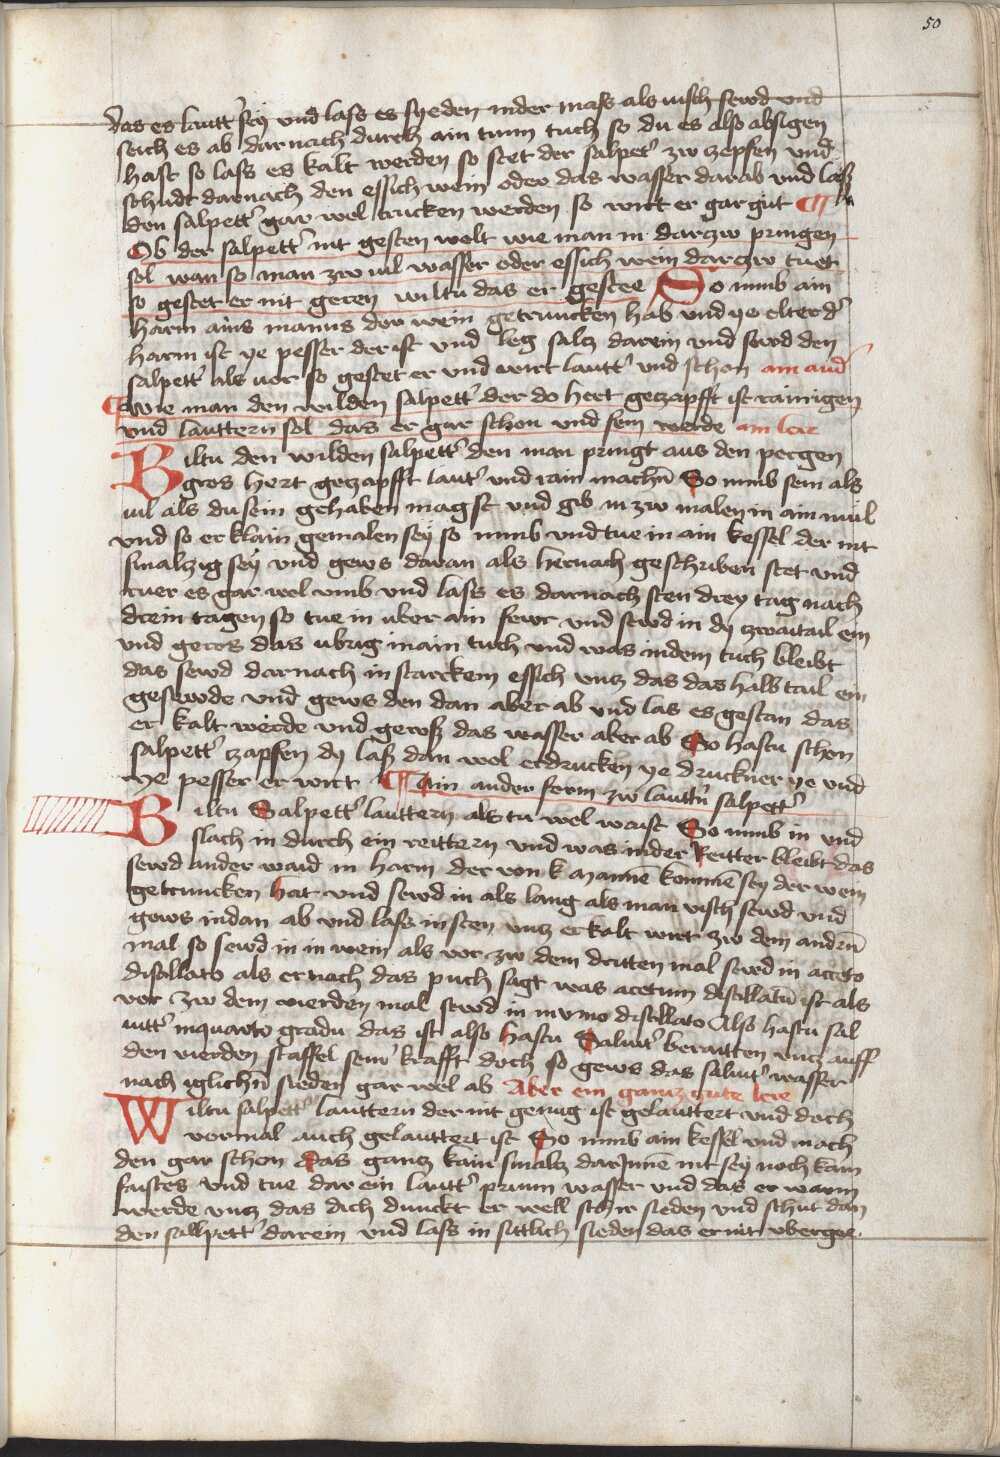 50
das es lautt' sey und lass es syeden inder mass als visch sewd und
seich es ab darnach durch ain tuim tuch so du es also absigen
hast so lass es kalt werden so stet der salpet' zw zepfen und
schudt darnach den essich wein oder das wasser darab und lass
den salpett' gar wol trucken werden so wirt er gar gut ¶
Ob der salpett' nit gesten wolt wie man in darzw pringen
sol wan so man zw vil wasser oder essich wein darzw tuet
so gestet er nit geren wiltu das er gestee So nimb ain
harm ains manns der wein getruncken hab und ye elterd'
harm ist ye pesser der ist und leg saltz darein und sewd den
salpett' als vor so gestet er und wirt lautt' und schon ain and'
¶ Wie man den wilden salpett' der do hert gezapfft ist rainigen
und lauttern sol das er gar schon und fein werde ain ler
Wiltu den wilden salpett' den man pringt aus den pergen
gros hert gezapfft laut' und rain machn̄ So nimb sein als
vil als du sein gehaben magst und gib in zw malen in ain mul
und so er klain gemalen sey so nimb und tue in ain kessel der nit
smalzig sey und gews daran als hernach geschriben stet und
ruer es gar wol umb und lass es darnach sten drey tag nach
drein tagen so tue in uber ain fewr und sewd in dy zwaitail ein
und geews das ubrig in ain tuch und was indem tuch bleibt
das sewd darnach in starckem essich unz das das halb tail ein
gesewde und gews den dan aber ab und las es gestan das
er kalt werde und gewss das wasser aber ab So hastu schon
salpett' zapfen dy lass dan wol erdrucken ye druckner ye und
ye pesser er wirt ¶ Ain ander form zw lauttn̄ salpett'
Wiltu Salpett' lauttern als tu wol waist So nimb in und
slach in durch ein reittern und was inder Reitter bleibt das
sewd ander waid in harm der von k manne komme sey der wein
getruncken hat und sewd in als lang als man visch sewd und
gews indan ab und lass in sten unz er kalt wirt zw dem andrn̄
mal so sewd in in wein als vor zw dem dritten mal sewd in aceto
distillato als er nach das puch sagt was acetum distillatū ist als
vor zw dem vierden mal sewd in in vino distillato Also hastu sal
nitt' in quarto gradu das ist also hastu Salnit' beraitten unz auff
den vierden staffel seiner krafft doch so gews das salnit' wasser
nach iglichn̄ sieden gar wol ab Aber ein gantz gute lere
Wiltu salpett' lauttern der nit genug ist gelauttert und doch
vormal auch gelauttert ist So nimb ain kessel und mach
den gar schon das gantz kain smaltz darJnnē nit sey noch kain
faistes und tue dar ein lautt' prunn wasser und das er warm
werde unz das dich dunckt er well schir sieden und schut dan
den sallpett' darein und lass in sittlich sieden das er nit ubergee